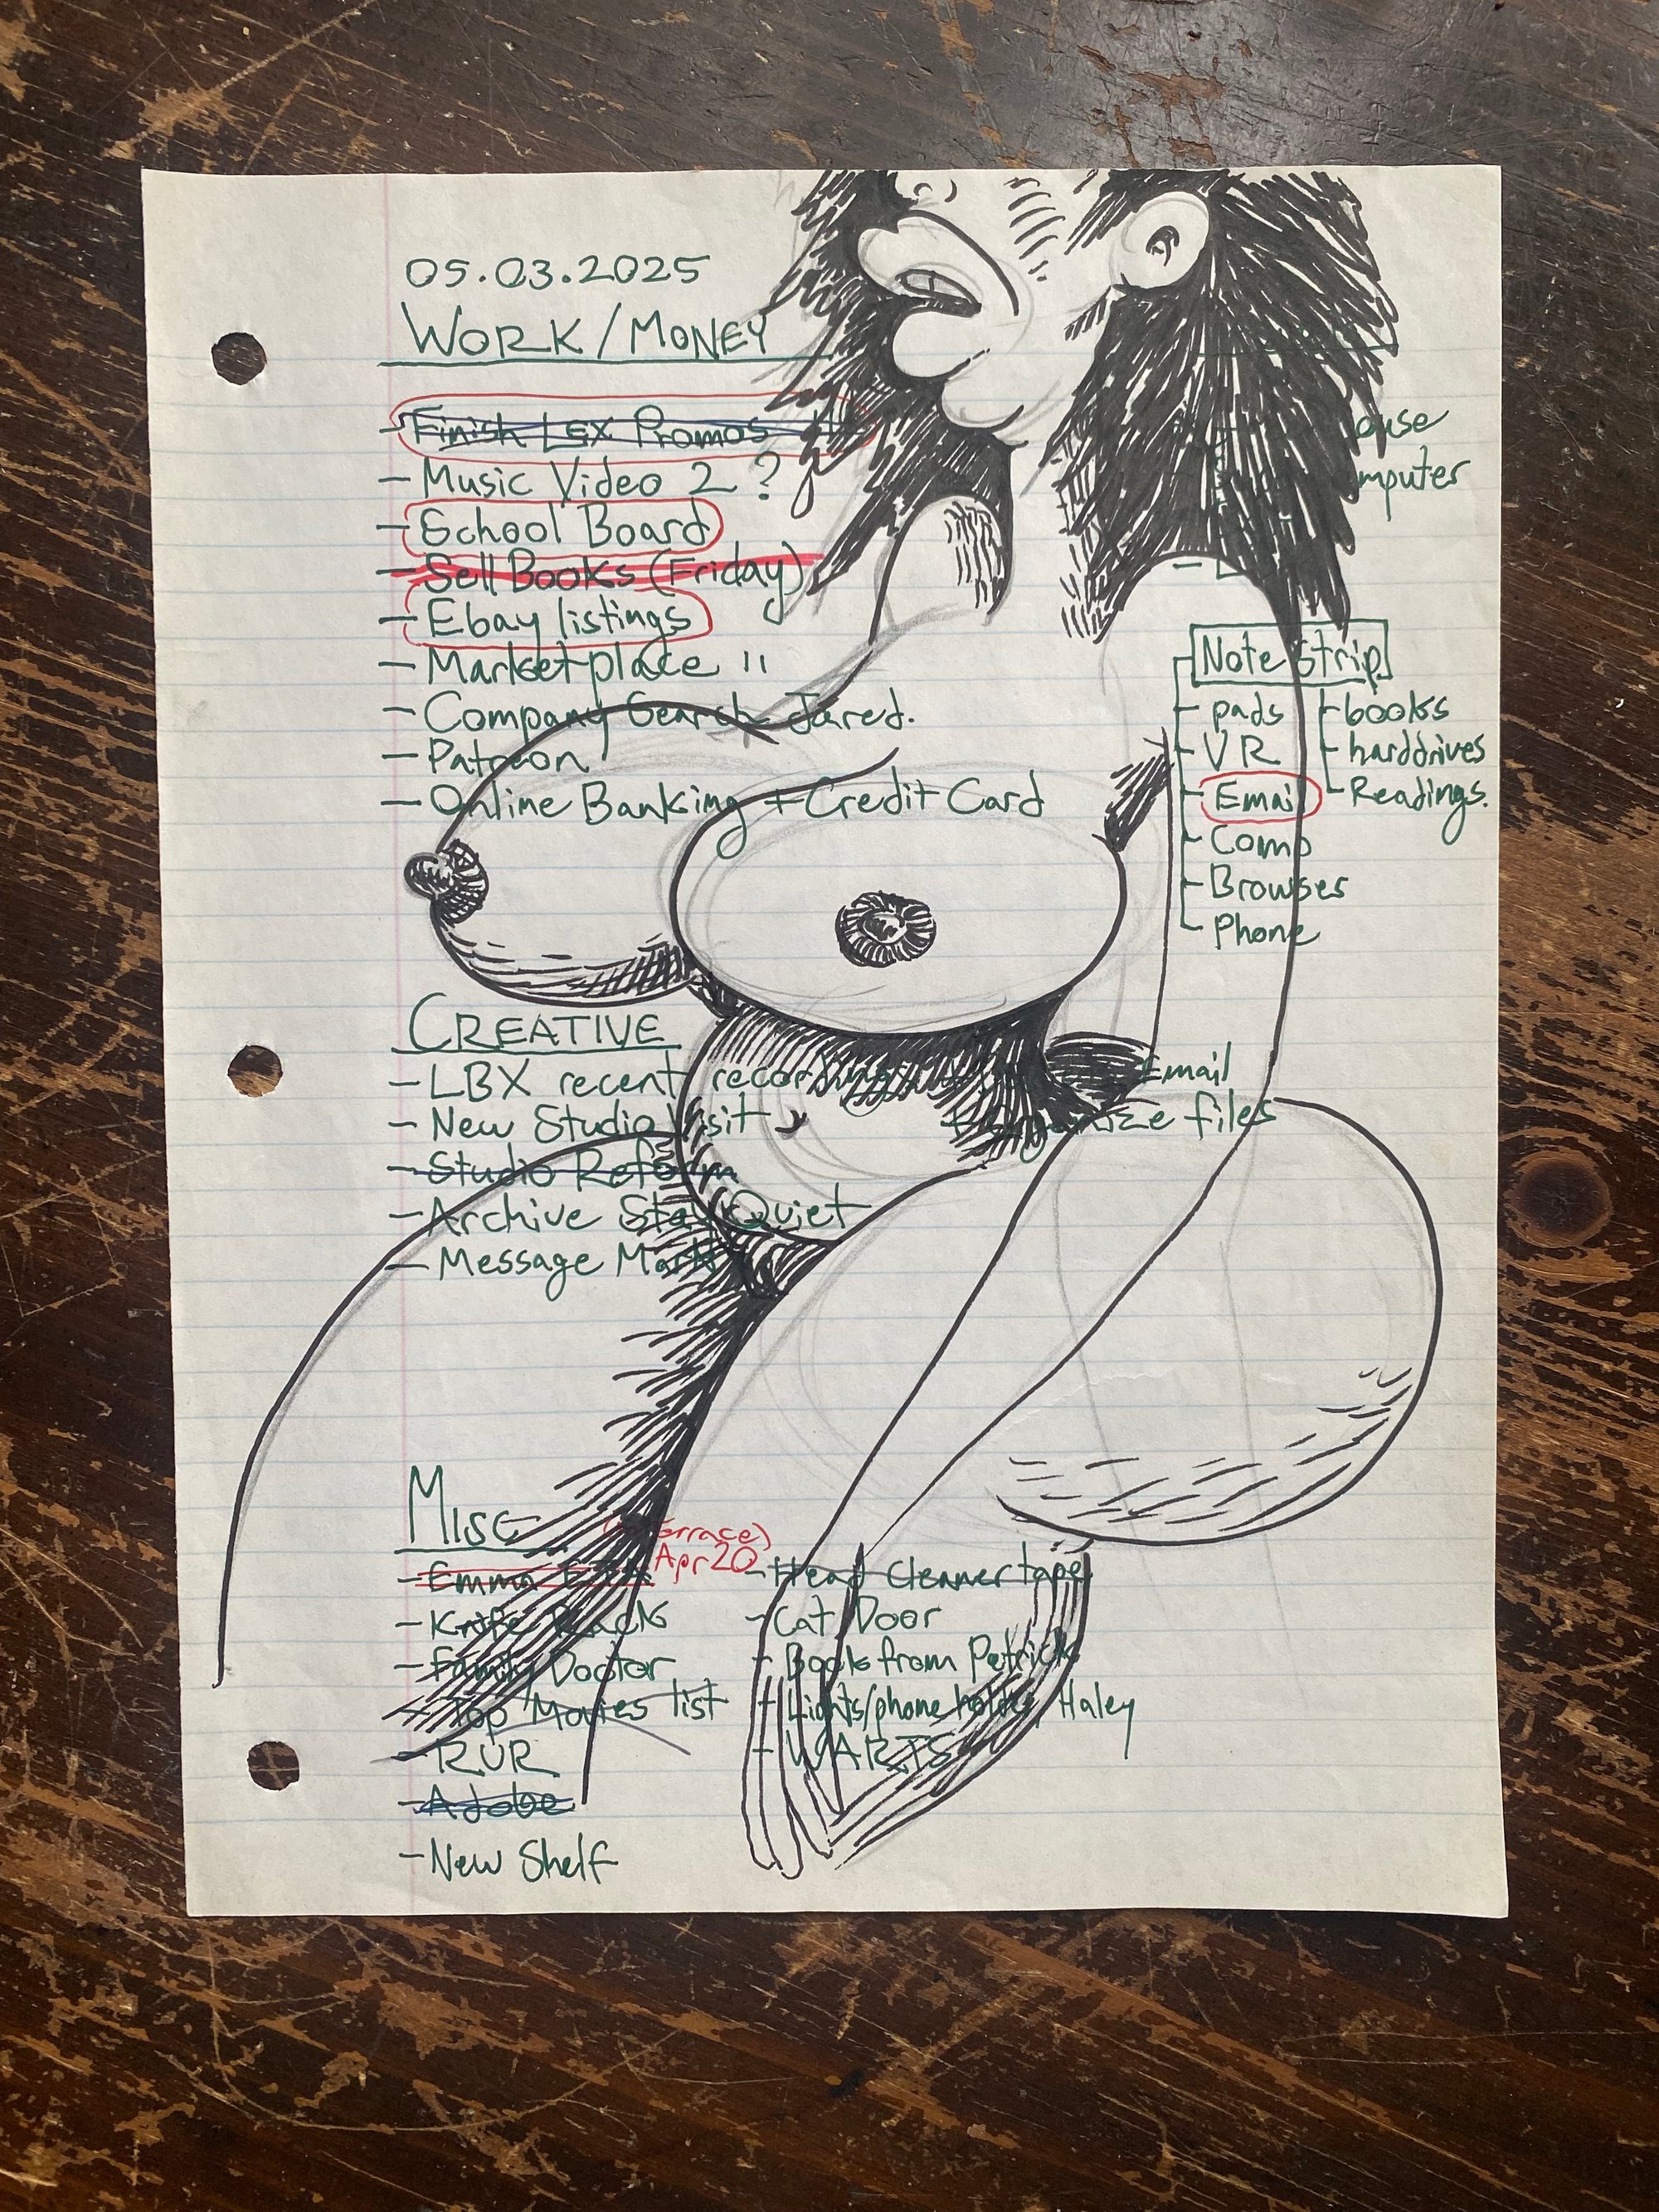 05.03.2025
WORK/MONEY
- Finish Lex Promos
- Music Video 2 ?
- School Board
- Sell Books (Friday)
- Ebay listings
- Marketplace "
- Company Search Jared.
- Patreon
- Online Banking + Credit Card
Note Strip
- pads
- VR
- Email
- Comp
- Browser
- Phone
- books
- harddrives
- Readings.
CREATIVE
- LBX recent recordings
- New Studio Visit
- Studio Reform
- Archive Stay Quiet
- Message Mark
Email
files
MISC
- Emma
Apr 20
- Knife Rack
- Family Doctor
- Top Movies list
- RUR
- Adobe
- New Shelf
- Head cleaner tape
- Cat Door
- Books from Patrick
- Lights/phone holder, Haley
- WARTS